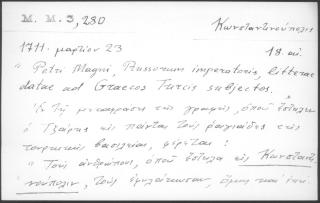 M. M. 3, 280
Κωνσταντινούπολις
1711. μαρτίου 23
18. αι.
"Petri Magni, Russorum imperatoris, litterae
datae ad Graecos Turcis subjectos.
Ἡ μετάφρασις τῆς γραφῆς, ὁποῦ ἔστειλεν
ὁ Τζάρης εἰς πάντας τοὺς ραγιάδες τῆς
τουρκικῆς βασιλείας,
"Τοὺς ἀνθρώπους, ὁποῦ ἔστειλα εἰς Κωνσταντι-
νούπολιν, τοὺς